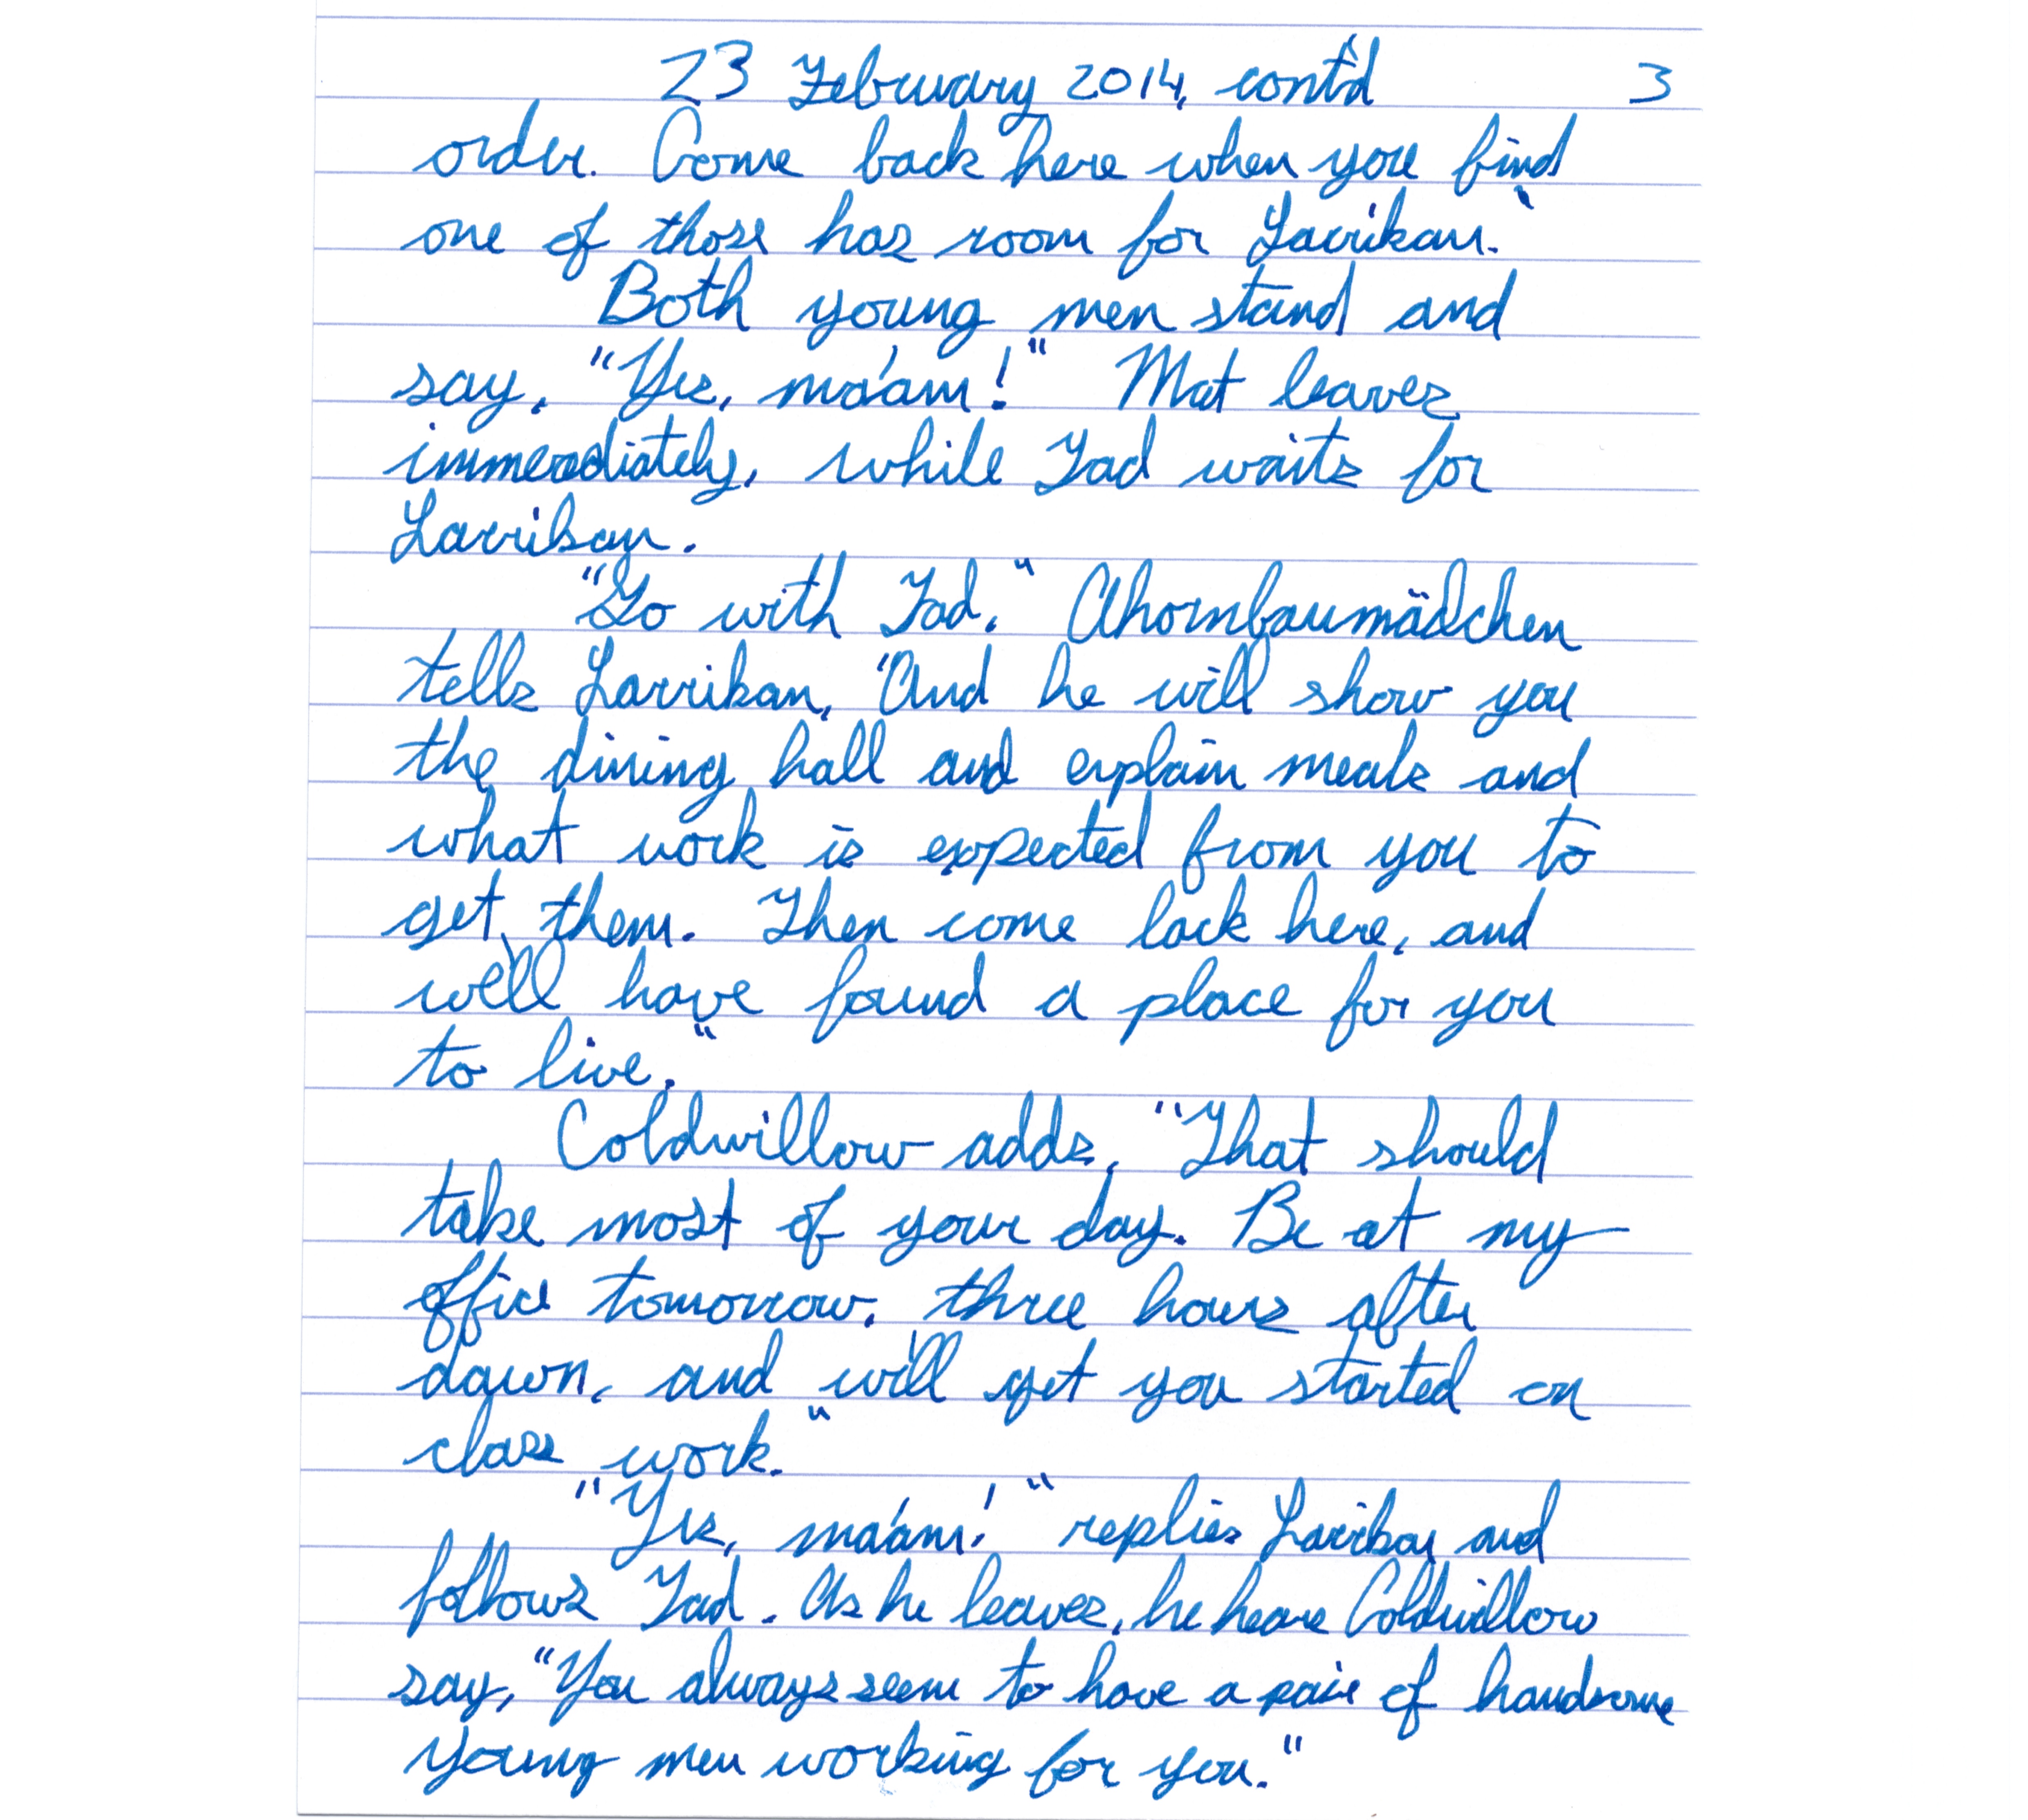 23 February 2014, cont'd 3
order. Come back here when you find
one of those has room for Larrikan."
Both young men stand and
say, "Yes, ma'am!" Mat leaves
immediately, while Tad waits for
Larrikan.
"Go with Tad," Ahornbaumädchen
tells Larrikan, "And he will show you
the dining hall and explain meals and
what work is expected from you to
get them. Then come back here, and
we'll have found a place for you
to live."
Coldwillow adds, "That should
take most of your day. Be at my
office tomorrow, three hours after
dawn, and we'll get you started on
class work."
"Yes, ma'am!" replies Larrikan and
follows Tad. As he leaves, he hears Coldwillow
say, "You always seem to have a pair of handsome
young men working for you."